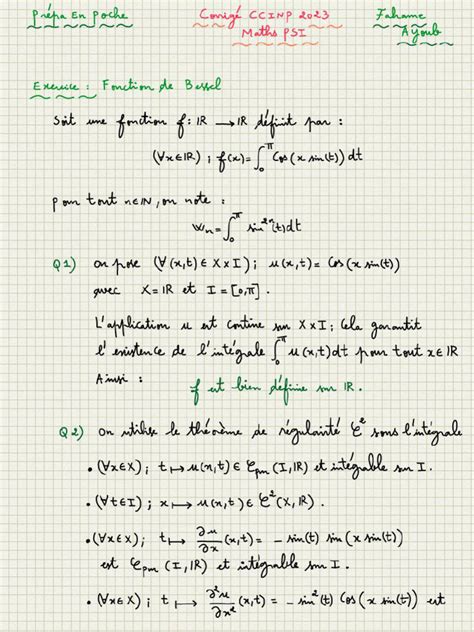 Prépa En Poche Corrigé CCINP 2023 Fahame
Maths PSI Ayoub
Exercice : Fonction de Bessel
Soit une fonction f: IR → IR définit par :
(∀x∈IR) ; f(x) = ∫₀^π Cos(x sin(t)) dt
pour tout n∈IN, on note :
Wₙ = ∫₀^π sin²ⁿ(t) dt
Q1) on pose (∀(x,t) ∈ X×I) ; u(x,t) = Cos(x sin(t))
avec X=IR et I = [0,π].
L'application u est continue sur X×I ; Cela garantit
l'existence de l'intégrale ∫₀^π u(x,t)dt pour tout x∈IR
Ainsi :
f est bien définie sur IR.
Q2) on utilise le théorème de régularité C² sous l'intégrale
• (∀x∈X) ; t ↦ u(x,t) ∈ Cpm (I,IR) et intégrable sur I.
• (∀t∈I) ; x ↦ u(x,t) ∈ C²(X,IR).
• (∀x∈X) ; t ↦ ∂u/∂x (x,t) = - sin(t) sin(x sin(t))
est Cpm (I,IR) et intégrable sur I.
• (∀x∈X) ; t ↦ ∂²u/∂x² (x,t) = - sin²(t) Cos(x sin(t)) est